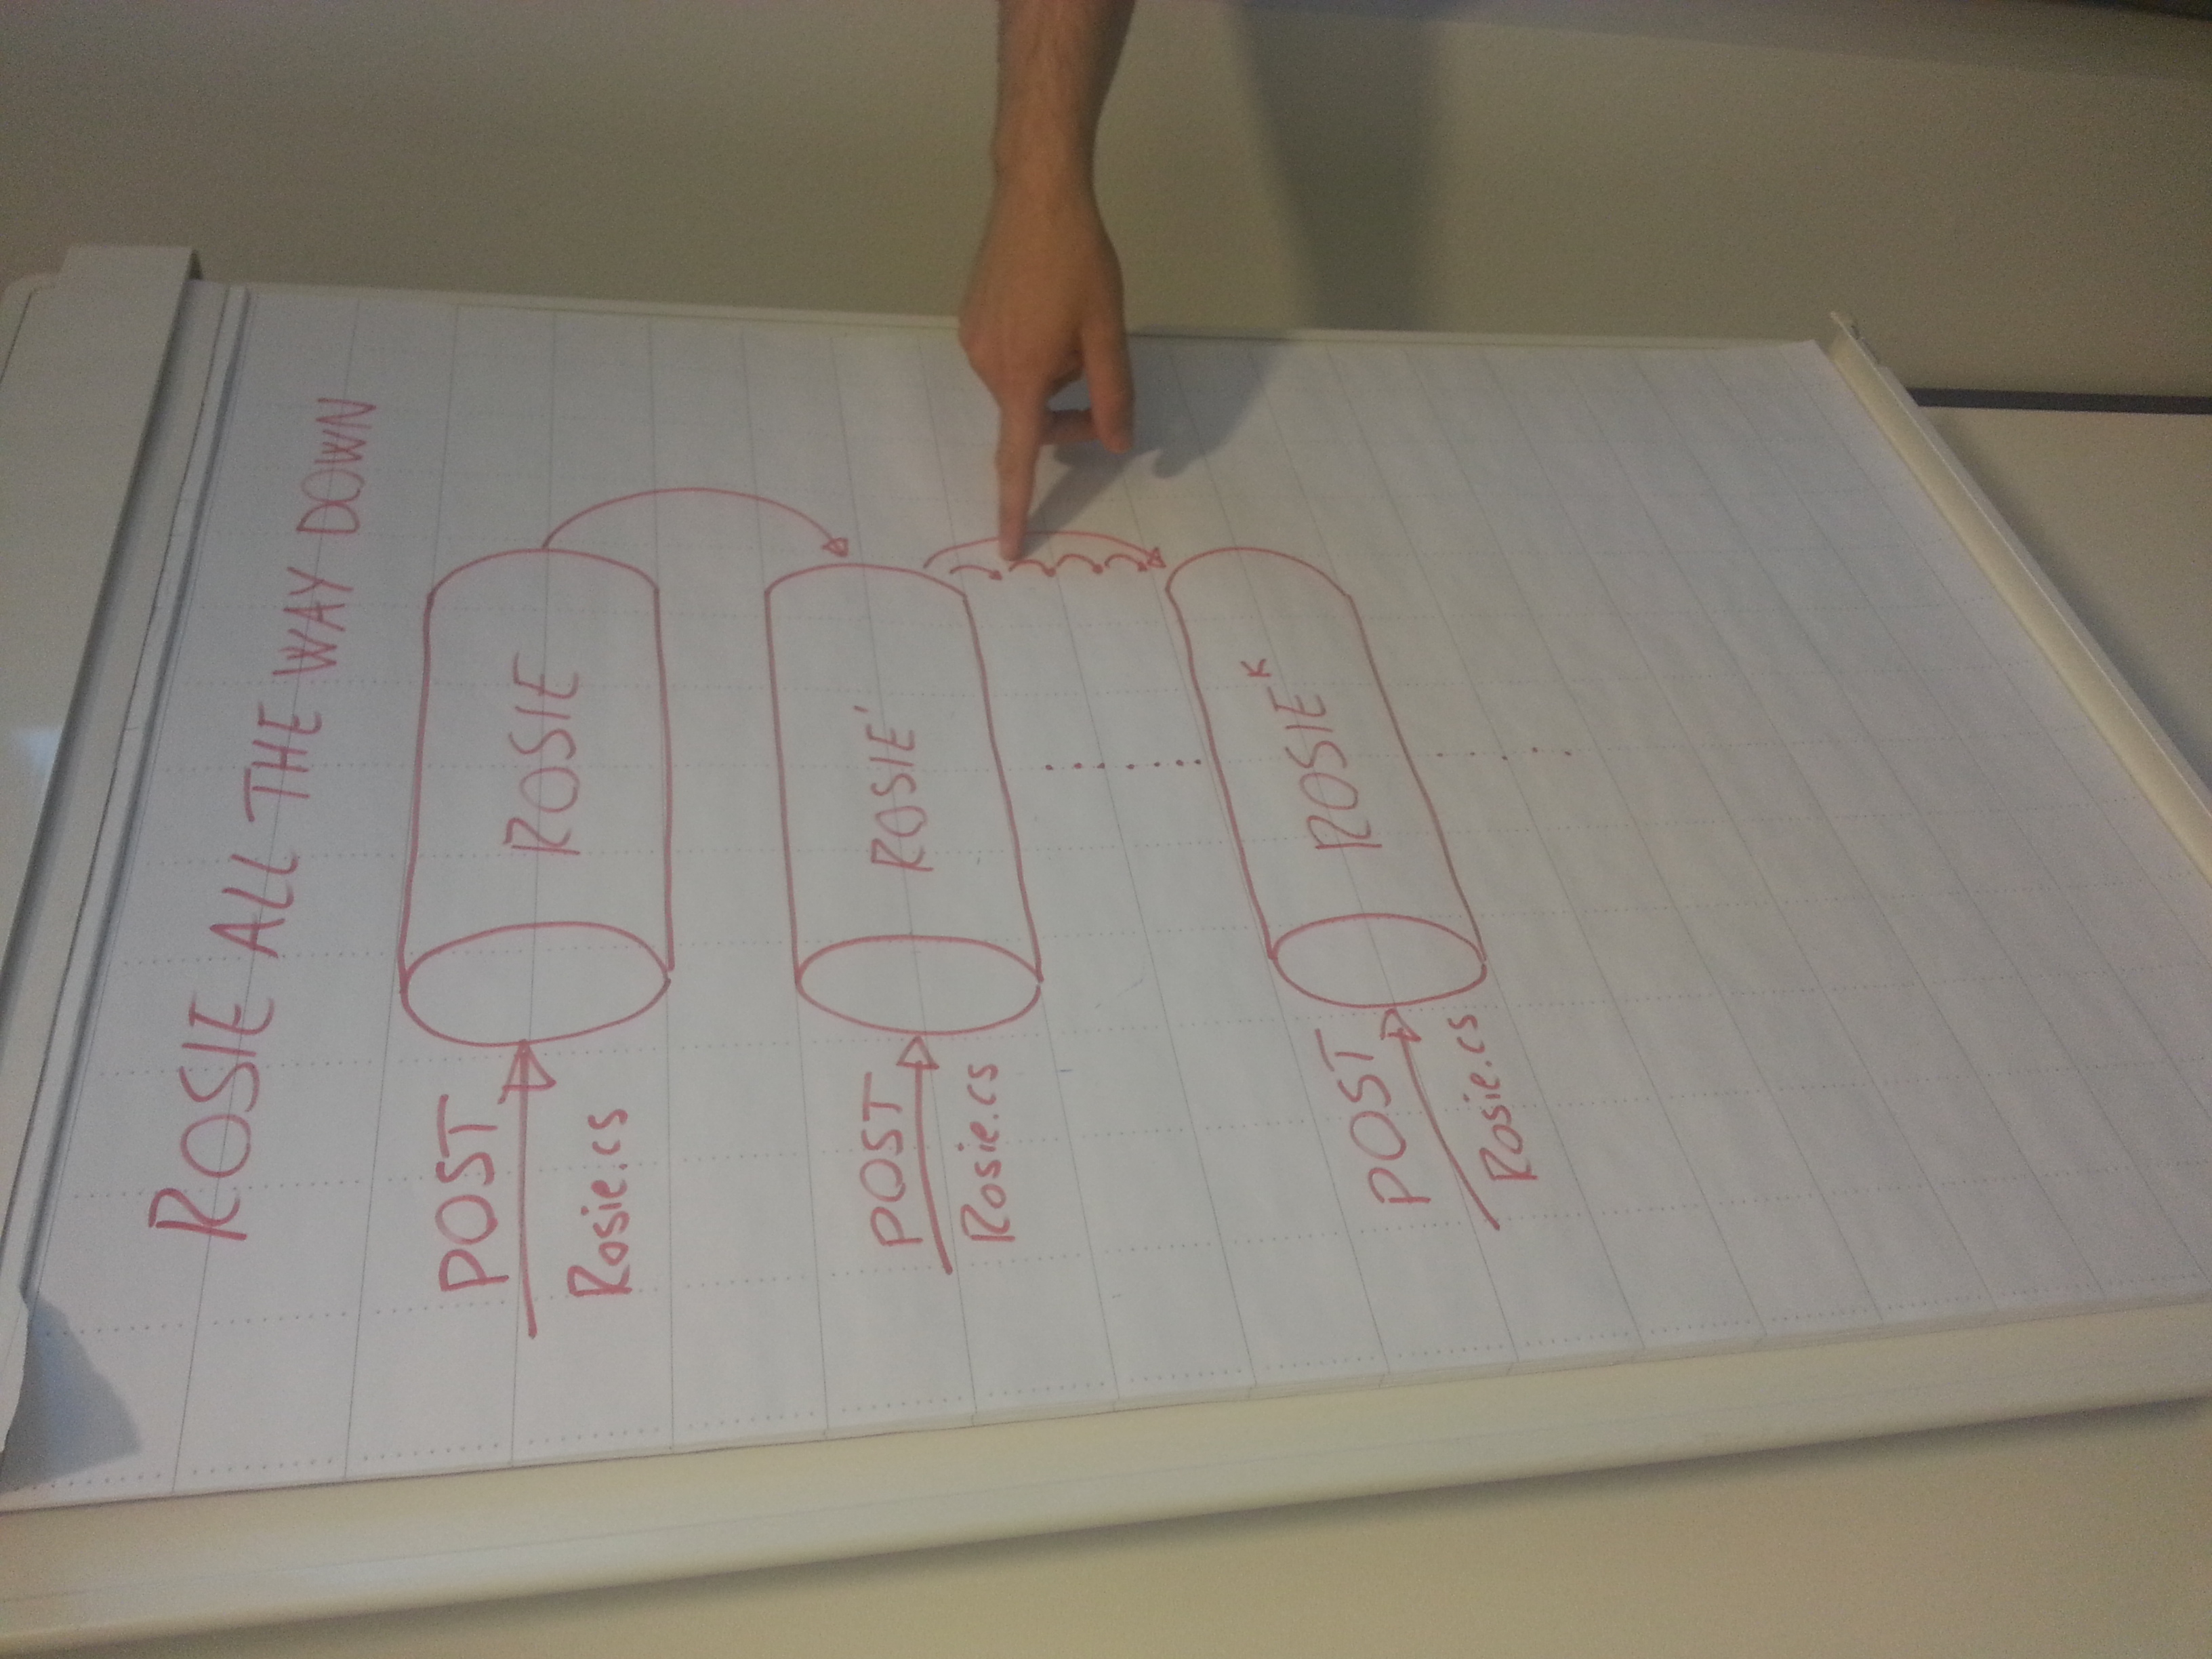 ROSIE ALL THE WAY DOWN
POST
ROSIE
Rosie.cs
POST
ROSIE'
Rosie.cs
POST
ROSIE^K
Rosie.cs